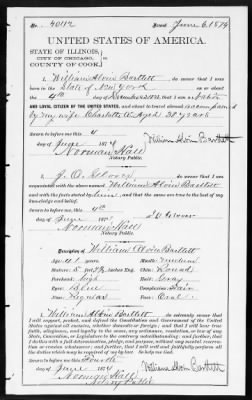 No. 40112 Issued June 6, 1874
UNITED STATES OF AMERICA.
STATE OF ILLINOIS,
CITY OF CHICAGO,
COUNTY OF COOK.
I, William Alvin Bartlett do swear that I was
born in the State of New York on the
4th day of December 1832, that I am a Native
AND LOYAL CITIZEN OF THE UNITED STATES, and about to travel abroad accompanied
by my wife Charlotte A. Aged 38 years
Sworn to before me this 4
day of June 1874 William Alvin Bartlett
Norman Hall
Notary Public.
I, J. O. Glover do swear that I am
acquainted with the above named William Alvin Bartlett
and with the facts above stated
Sworn to before me this 4th
day of June 1874 J O Glover
Norman Hall
Notary Public.
Description of William Alvin Bartlett
Age 41 years Mouth medium
Stature 5 feet inches Eng. Chin Round
Forehead high Hair Gray
Eyes Blue Complexion Fair
Nose Regular Face Oval
I, William Alvin Bartlett do solemnly swear that
I will support, protect, and defend the Constitution and Government of the United
States against all enemies, whether domestic or foreign; and that I will bear true
faith, allegiance, and loyalty to the same, any ordinance, resolution, or law of any
State, Convention, or Legislature to the contrary notwithstanding; and further, that
I do this with a full determination, pledge, and purpose, without any mental reserva-
tion or evasion whatsoever; and further, that I will well and faithfully perform
all the duties which may be required of me by law: So help me God.
Sworn to before me this Fourth
day of June 1874 William Alvin Bartlett
Norman Hall
Notary Public